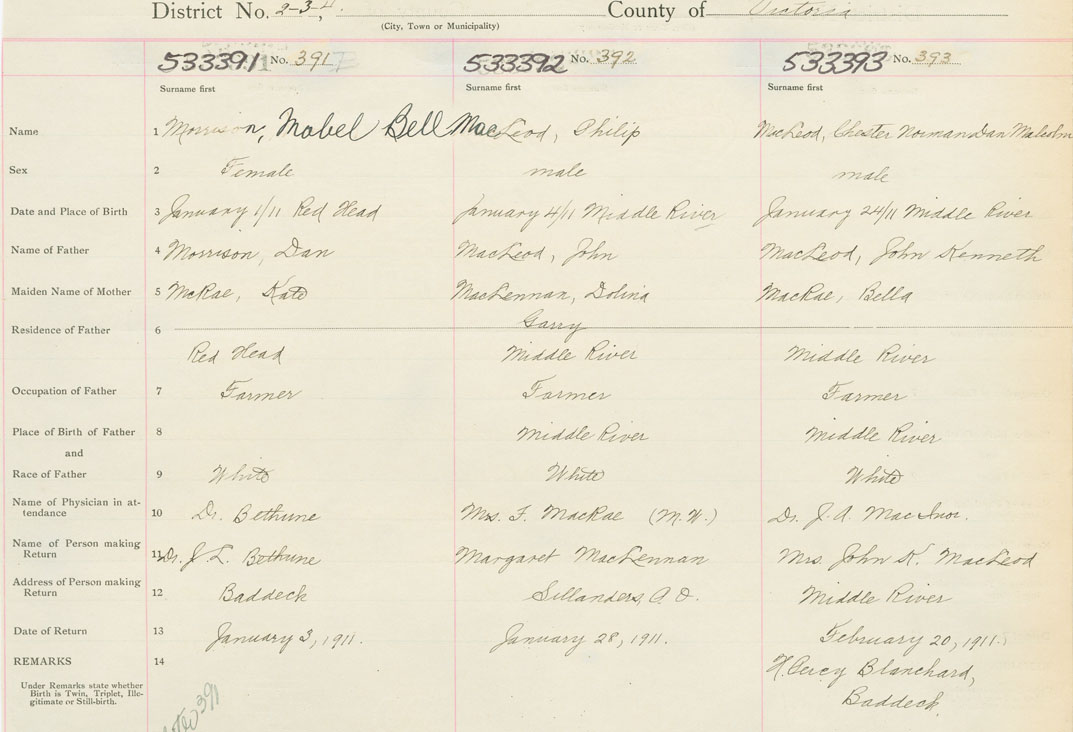 District No. 2-3-4. County of Victoria
(City, Town or Municipality)
533391 No. 391 533392 No. 392 533393 No. 393
Surname first Surname first Surname first
Name 1 Morrison, Mabel Bell MacLeod, Philip MacLeod, Chester Norman Dan Malcolm
Sex 2 Female male male
Date and Place of Birth 3 January 1/11 Red Head January 4/11 Middle River January 24/11 Middle River
Name of Father 4 Morrison, Dan MacLeod, John MacLeod, John Kenneth
Maiden Name of Mother 5 McRae, Kate MacLennan, Dolina MacRae, Bella
Residence of Father 6 Garry
Red Head Middle River Middle River
Occupation of Father 7 Farmer Farmer Farmer
Place of Birth of Father 8 Middle River Middle River
and
Race of Father 9 White White White
Name of Physician in at-
tendance 10 Dr. Bethune Mrs. F. MacRae (M.W.) Dr. J. A. Mac
Name of Person making
Return 11 Dr. J. L. Bethune Margaret MacLennan Mrs. John K. MacLeod
Address of Person making
Return 12 Baddeck Middle River
Date of Return 13 January 3, 1911. January 28, 1911. February 20, 1911.
REMARKS 14 H. Percy Blanchard,
Under Remarks state whether
Birth is Twin, Triplet, Ille-
gitimate or Still-birth.
Baddeck.
391